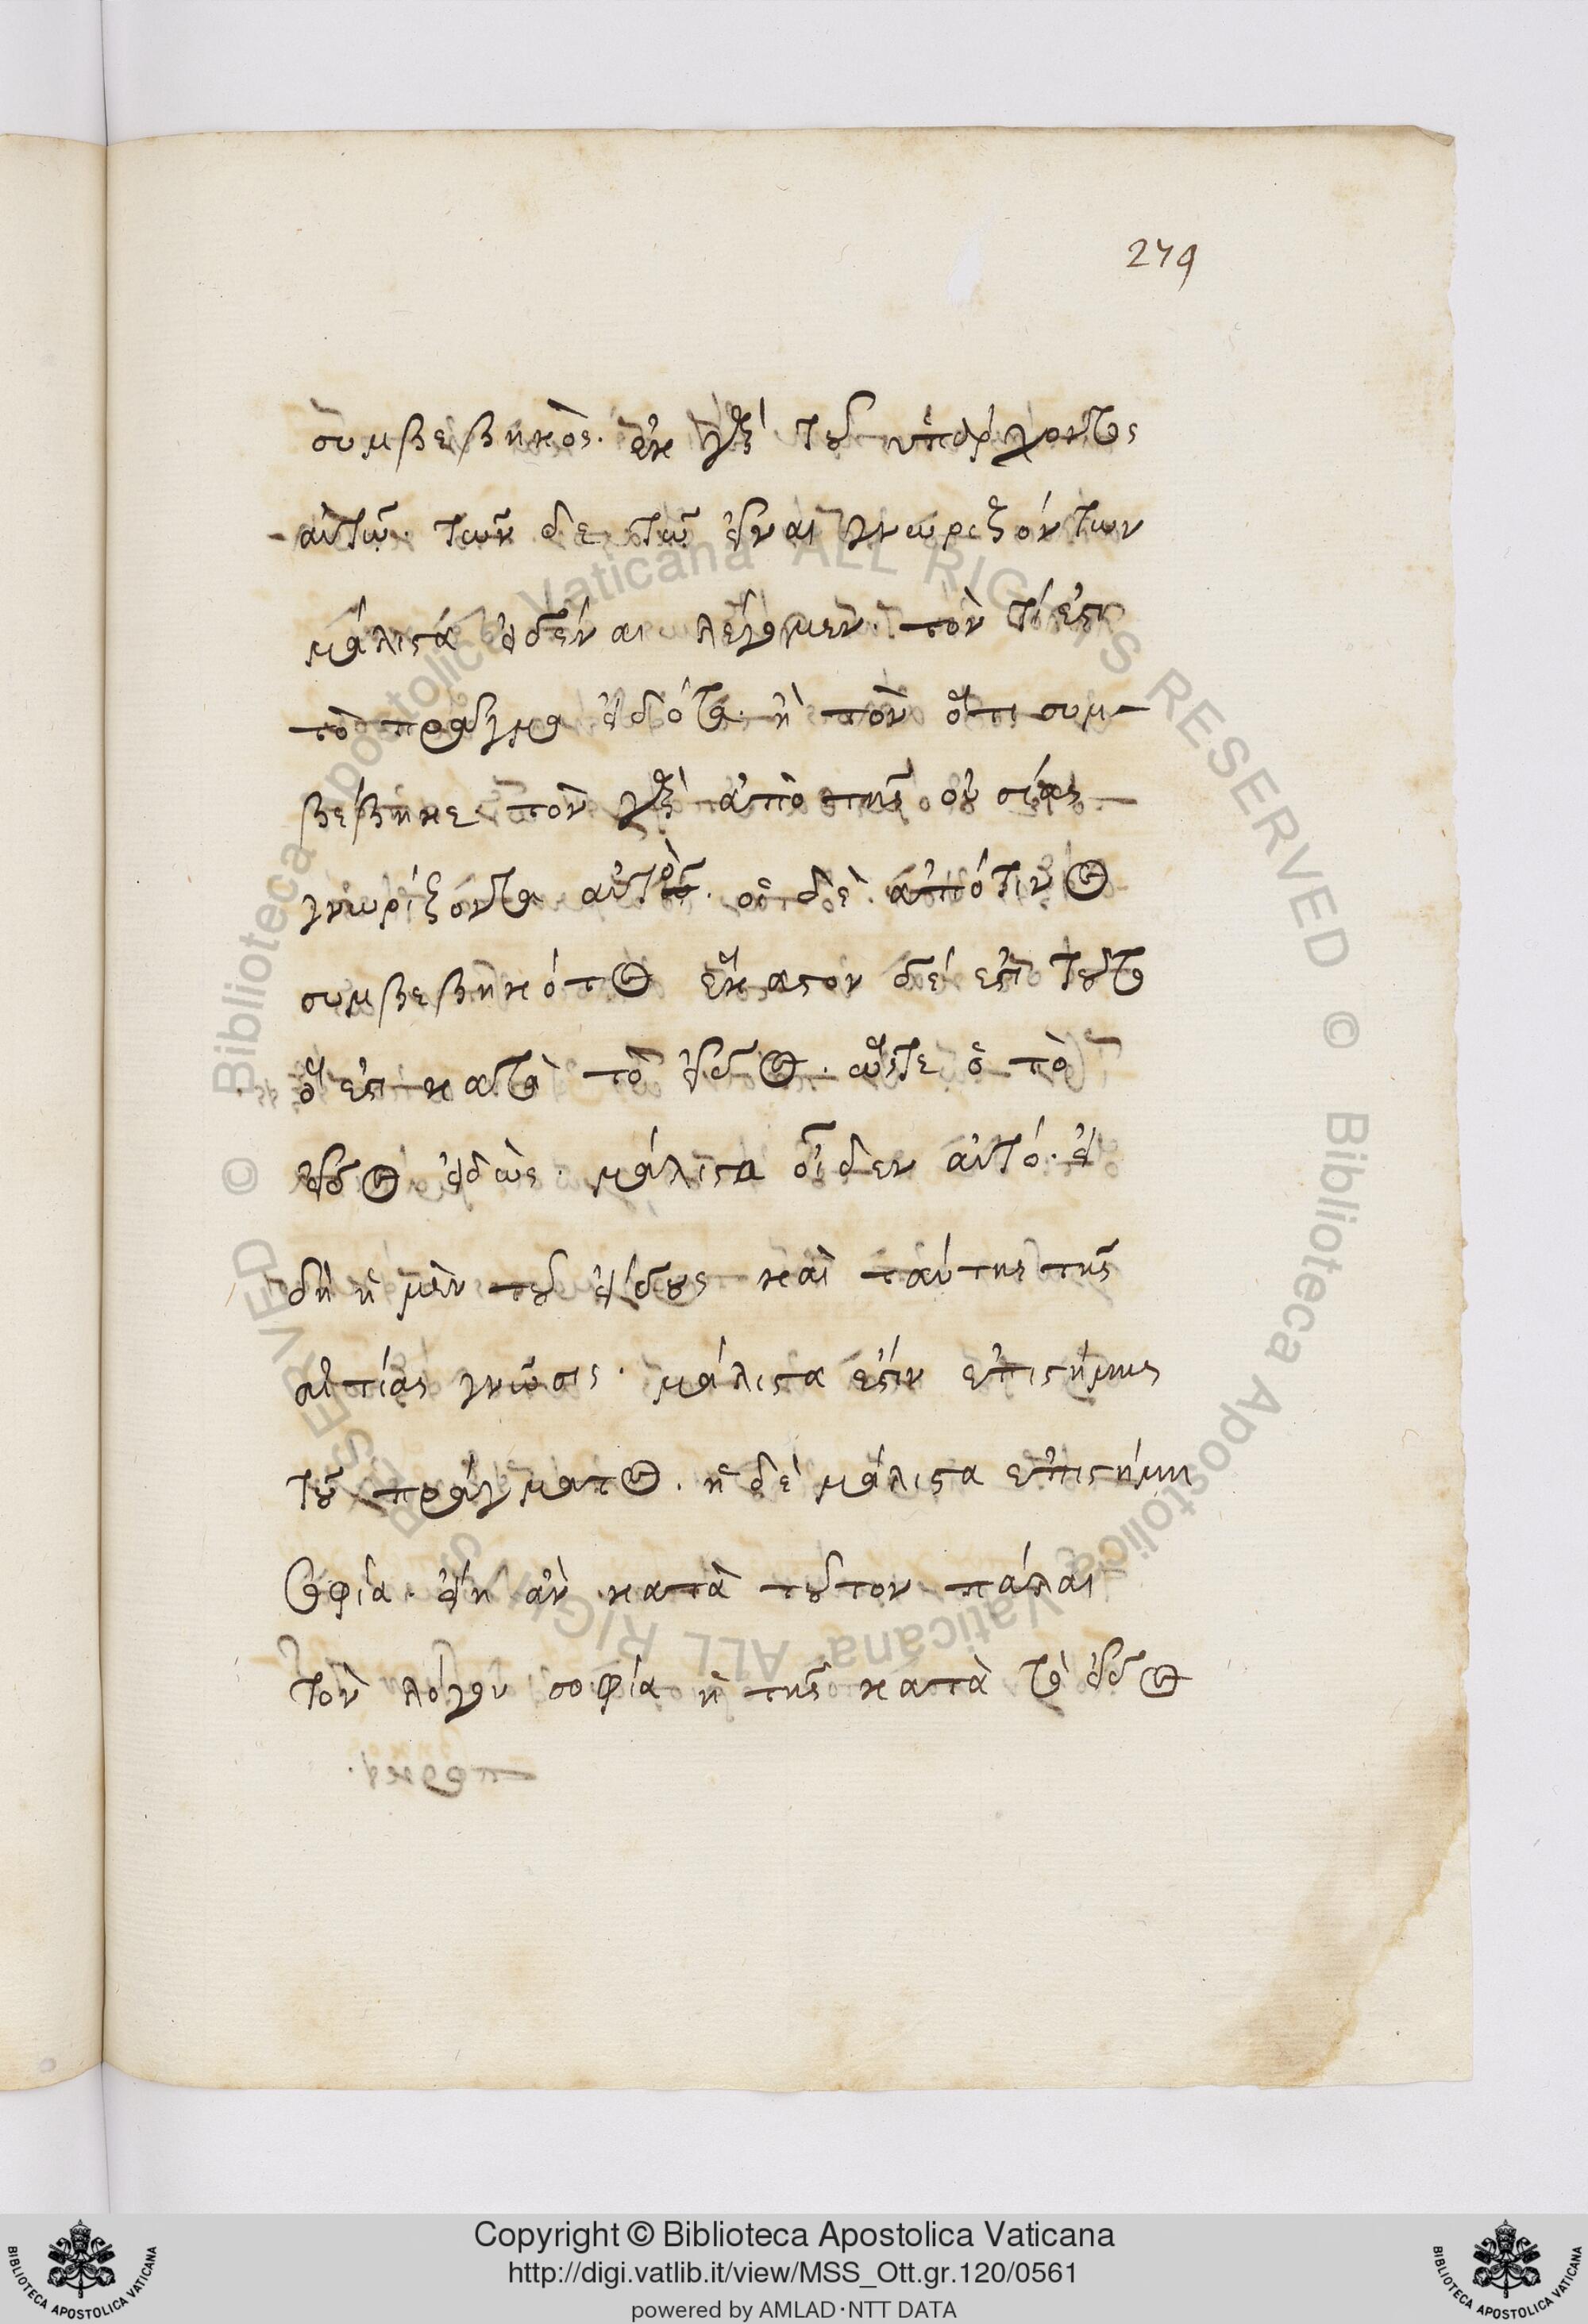 279
συμβεβηκὸς. ἐκ γὰρ τοῦ ὑπάρχοντος
αὐτῶ. τῶν δε τῶ εἶναι γνωριζόντων
μάλιστα εἰδέναι λέγομεν. τὸν τί ἐστι
τὸ πρᾶγμα εἰδότα. ἢ τὸν ὅτι συμ-
βέβηκε τὸν γὰρ ἀπὸ τῆς οὐσίας
γνωρίζοντα αὐτὸ. οἱ δὲ ἀπό τινος
συμβεβηκότος ἕκαστον δέ ἐστι τοῦτο
ὅ ἐστι κατὰ τὸ εἶδος. ὥστε ὁ τὸ
εἶδος εἰδὼς. μάλιστα οἶδεν αὐτό. εἰ
δὴ ἡ μὲν τοῦ εἴδους καὶ ταύτης τῆς
αἰτίας γνῶσις. μάλιστα ἐστὶν ἐπιστήμης
τοῦ πράγματος. ἡ δὲ μάλιστα ἐπιστήμη
σοφία. εἴη ἂν κατὰ τοῦτον πάλαι
τὸν λόγον σοφία ἡ τῆς κατὰ τὸ εἶδος
© Biblioteca Apostolica Vaticana ALL RIGHTS RESERVED © Biblioteca Apostolica Vaticana ALL RIGHTS RESERVED
Copyright © Biblioteca Apostolica Vaticana
http://digi.vatlib.it/view/MSS_Ott.gr.120/0561
powered by AMLAD·NTT DATA
BIBLIOTECA APOSTOLICA VATICANA
BIBLIOTECA APOSTOLICA VATICANA